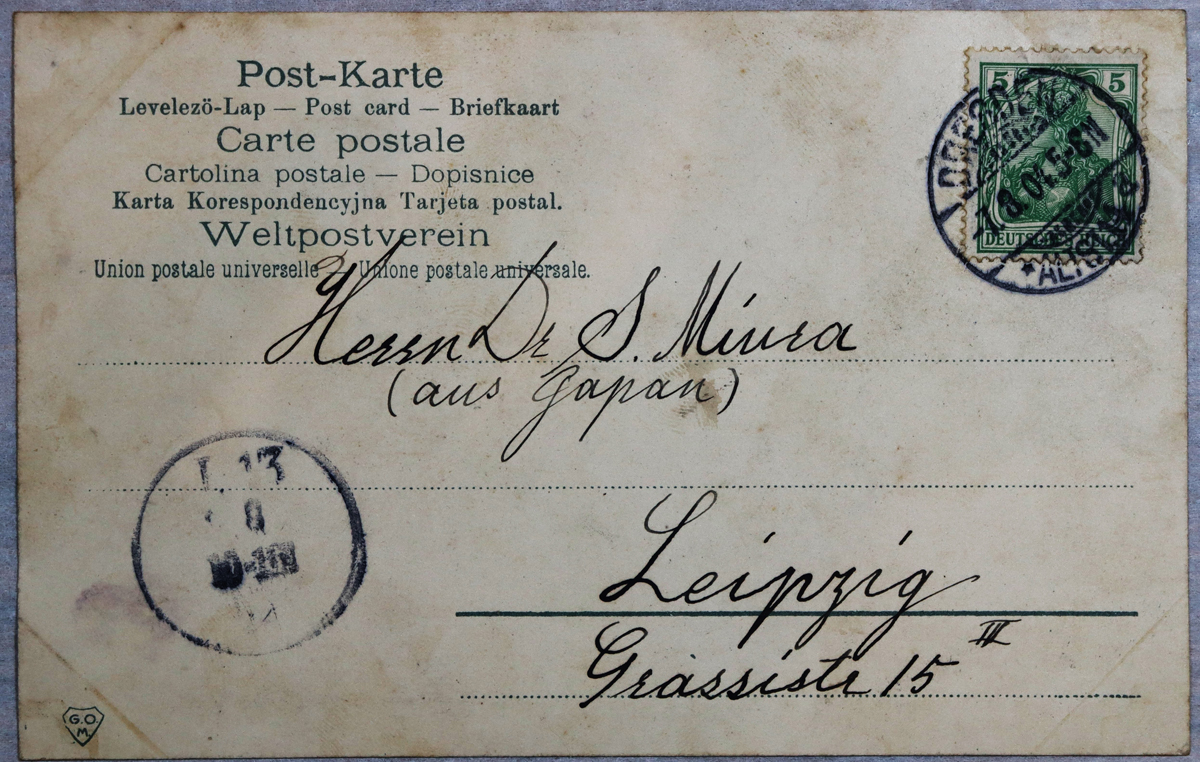 Post-Karte
Levelezö-Lap — Post card — Briefkaart
Carte postale
Cartolina postale — Dopisnice
Karta Korespondencyjna Tarjeta postal.
Weltpostverein
Union postale universelle Unione postale universale.
5 5
DEUTSCHES REICH
DRESDEN
5-6N
Herrn Dr S. Miura
(aus Japan)
Leipzig
Grassistr 15 III
G.O.
M.